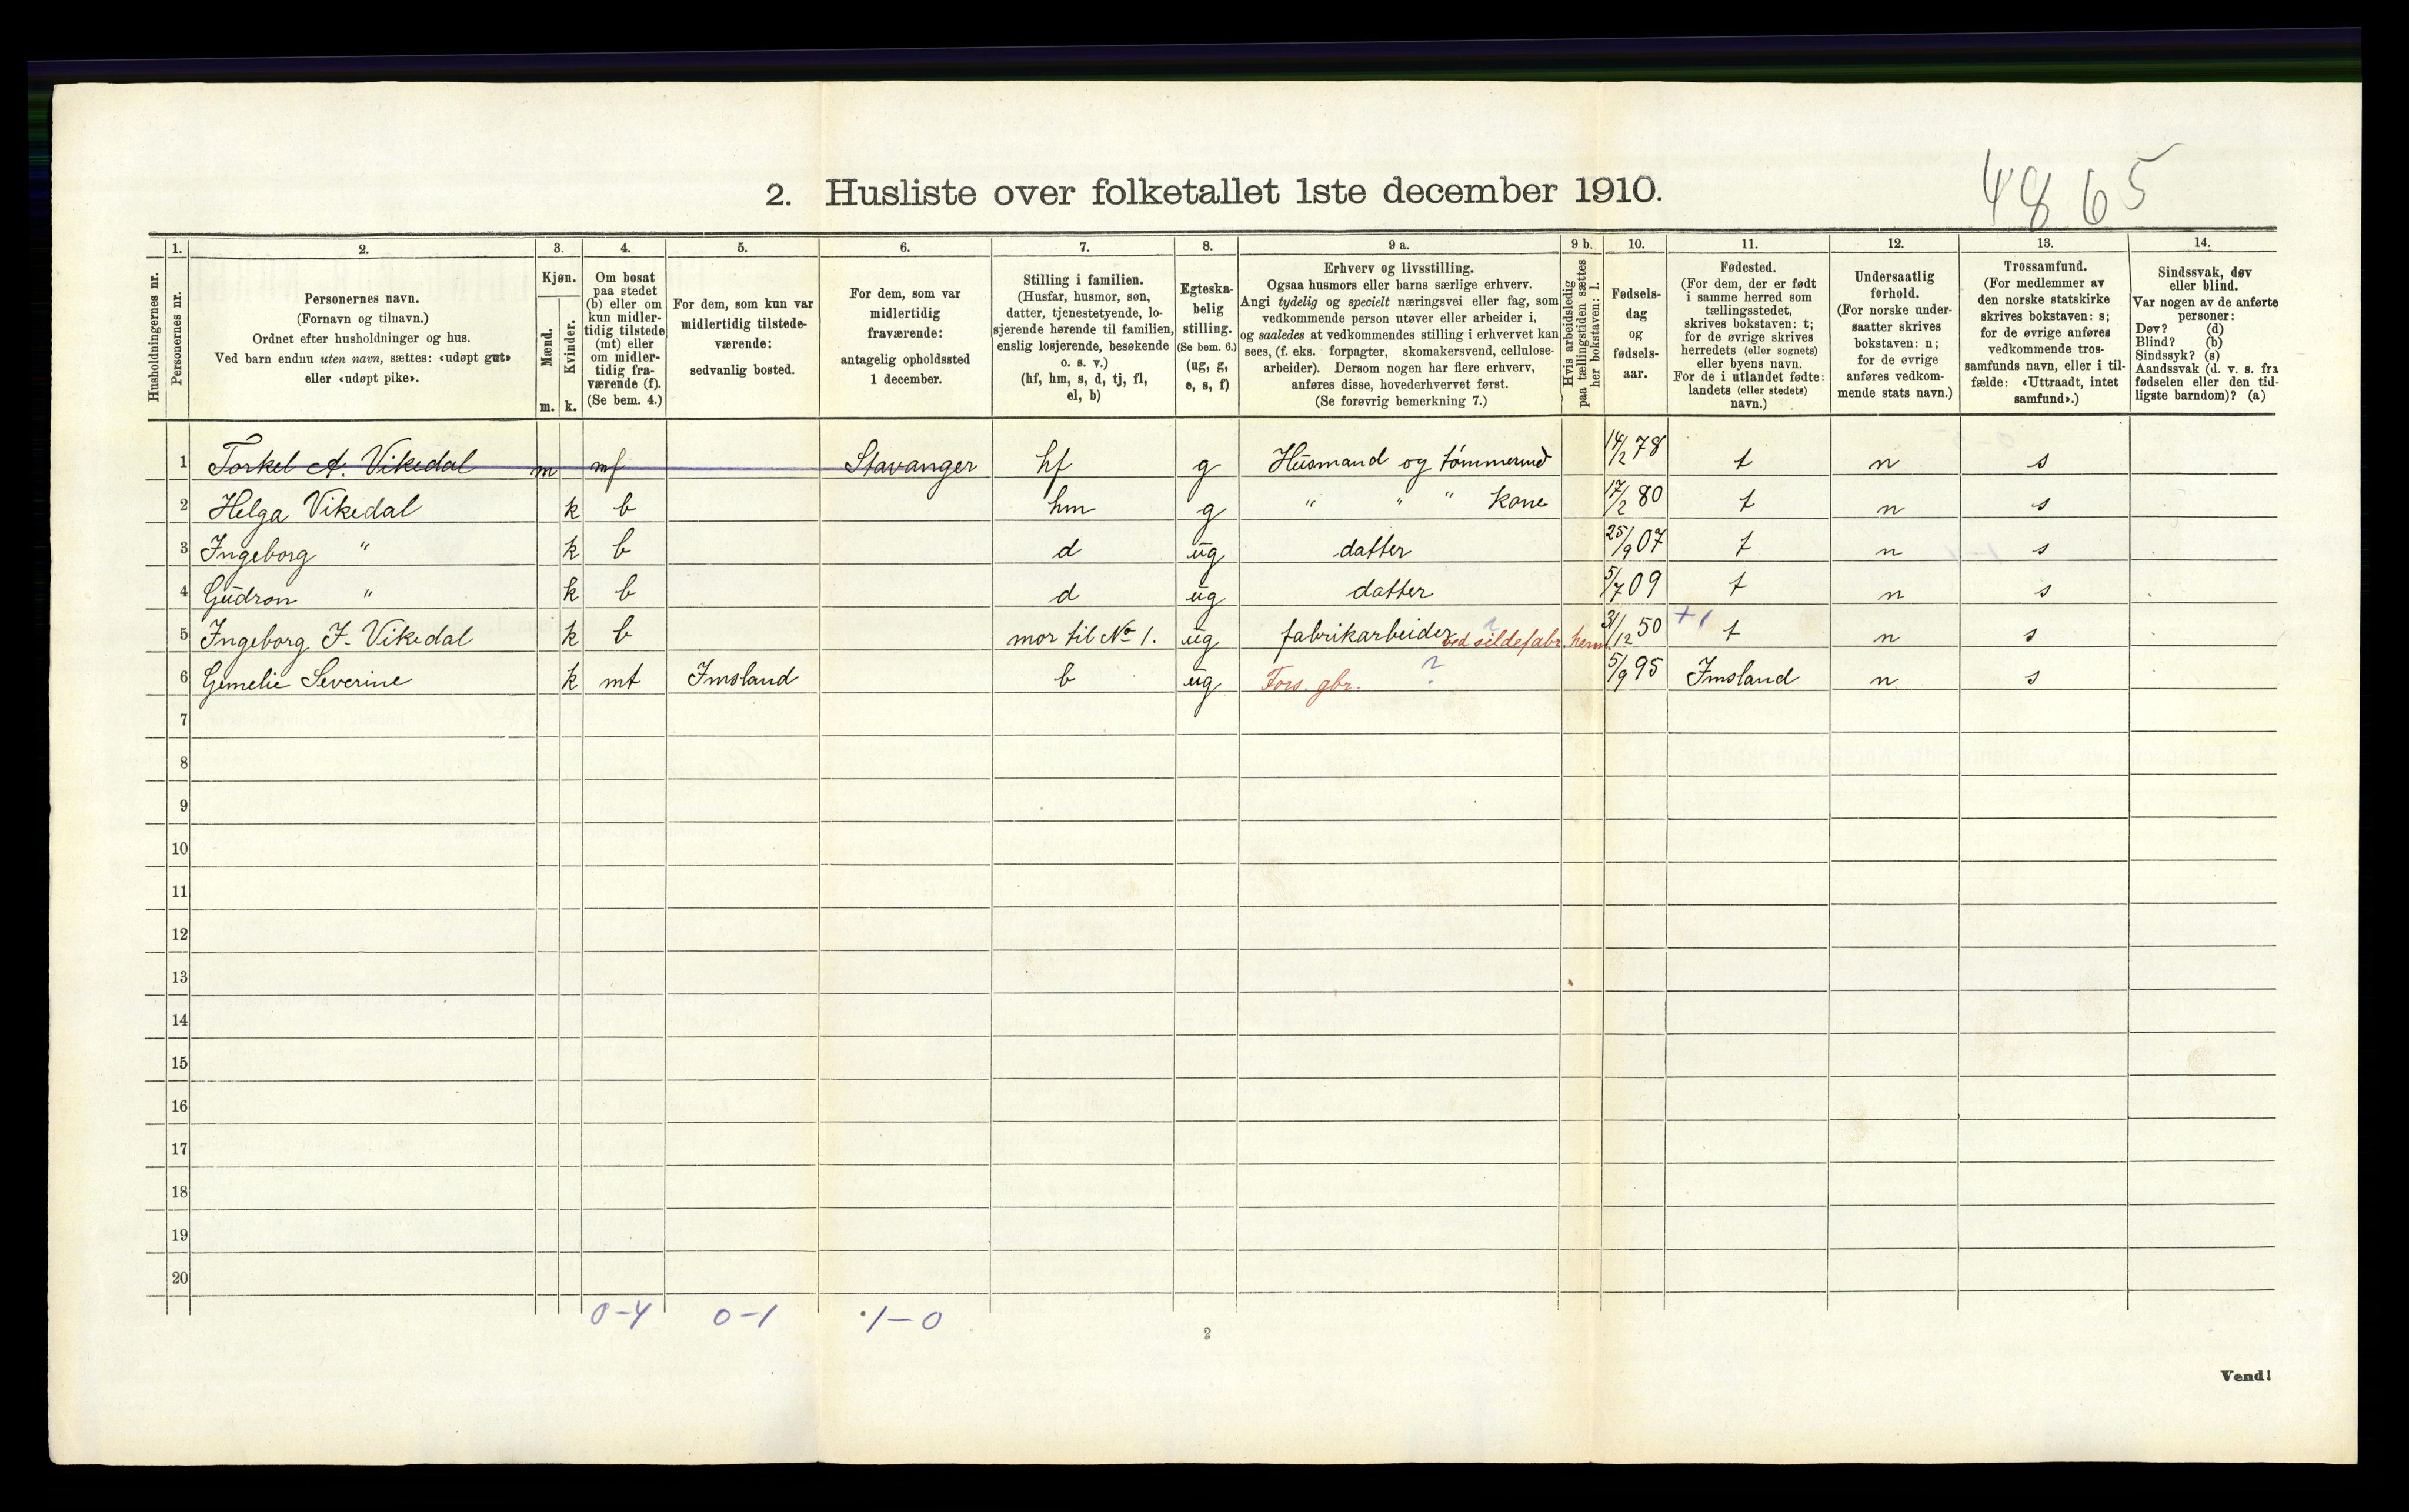 4865
2. Husliste over folketallet 1ste december 1910.
Husholdningernes nr.
1.
Personernes nr.
2.
Personernes navn.
(Fornavn og tilnavn.)
Ordnet efter husholdninger og hus.
Ved barn endnu uten navn, sættes: «udøpt gut»
eller «udøpt pike».
3.
Kjøn.
Mænd.
Kvinder.
m. k.
4.
Om bosat
paa stedet
(b) eller om
kun midler-
tidig tilstede
(mt) eller
om midler-
tidig fra-
værende (f).
(Se bem. 4.)
5.
For dem, som kun var
midlertidig tilstede-
værende:
sedvanlig bosted.
6.
For dem, som var
midlertidig
fraværende:
antagelig opholdssted
1 december.
7.
Stilling i familien.
(Husfar, husmor, søn,
datter, tjenestetyende, lo-
sjerende hørende til familien,
enslig losjerende, besøkende
o. s. v.)
(hf, hm, s, d, tj, fl,
el, b)
8.
Egteska-
belig
stilling.
(Se bem. 6.)
(ug, g,
e, s, f)
9 a.
Erhverv og livsstilling.
Ogsaa husmors eller barns særlige erhverv.
Angi tydelig og specielt næringsvei eller fag, som
vedkommende person utøver eller arbeider i,
og saaledes at vedkommendes stilling i erhvervet kan
sees, (f. eks. forpagter, skomakersvend, cellulose-
arbeider). Dersom nogen har flere erhverv,
anføres disse, hovederhvervet først.
(Se forøvrig bemerkning 7.)
9 b.
Hvis arbeidsledig
paa tællingstiden sættes
her bokstaven: l.
10.
Fødsels-
dag
og
fødsels-
aar.
11.
Fødested.
(For dem, der er født
i samme herred som
tællingsstedet,
skrives bokstaven: t;
for de øvrige skrives
herredets (eller sognets)
eller byens navn.
For de i utlandet fødte:
landets (eller stedets)
navn.)
12.
Undersaatlig
forhold.
(For norske under-
saatter skrives
bokstaven: n;
for de øvrige
anføres vedkom-
mende stats navn.)
13.
Trossamfund.
(For medlemmer av
den norske statskirke
skrives bokstaven: s;
for de øvrige anføres
vedkommende tros-
samfunds navn, eller i til-
fælde: «Uttraadt, intet
samfund».)
14.
Sindssvak, døv
eller blind.
Var nogen av de anførte
personer:
Døv? (d)
Blind? (b)
Sindssyk? (s)
Aandssvak (d. v. s. fra
fødselen eller den tid-
ligste barndom)? (a)
1 Torkel A. Vikedal m mf Stavanger hf g Husmand og tømmermd 14/2 78 t n s
2 Helga Vikedal k b hm g " " " kone 17/2 80 t n s
3 Ingeborg " k b d ug datter 25/9 07 t n s
4 Gudron " k b d ug datter 5/7 09 t n s
5 Ingeborg J. Vikedal k b mor til No 1. ug fabrikarbeider ved sildefabr. herm. 31/12 50 +1 t n s
6 Gemelie Severine k mt Imsland b ug Fors. gbr. ? 5/9 95 Imsland n s
7
8
9
10
11
12
13
14
15
16
17
18
19
20
0-4 0-1 1-0
2
Vend!